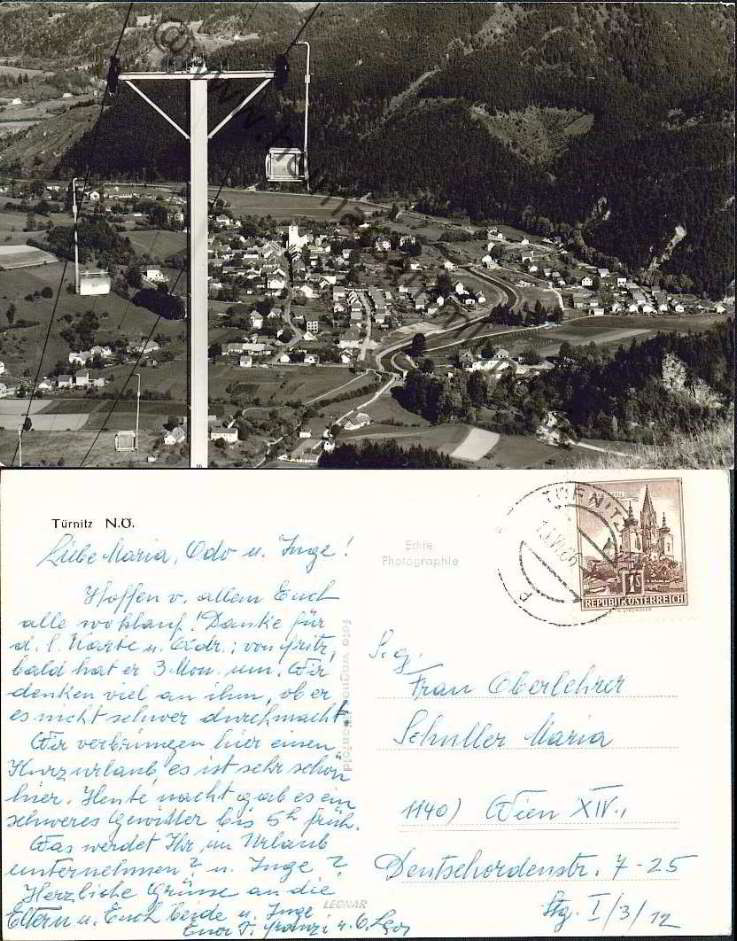 Türnitz N.Ö.
Liebe Maria, Odo u. Inge!
Hoffen v. allem Euch
alle wohlauf! Danke für
d. l. Karte u. Adr.; von Fritz,
bald hat er 3 Mon. um. Wir
denken viel an ihm, ob er
es nicht schwer durchmacht
Wir verbringen hier einen
Kurzurlaub, es ist sehr schön
hier. Heute nacht gab es ein
schweres Gewitter bis 5h früh.
Was werdet Ihr im Urlaub
unternehmen? u. Inge?
Herzliche Grüsse an die
Eltern u. Euch beide u. Inge
Echte
Photographie
TÜRNITZ
1S
REPUBLIK ÖSTERREICH
S. g.
Frau Oberlehrer
Schuller Maria
1140) Wien XIV.,
Deutschordenstr. 7-25
Stg. I/3/12
LEONAR